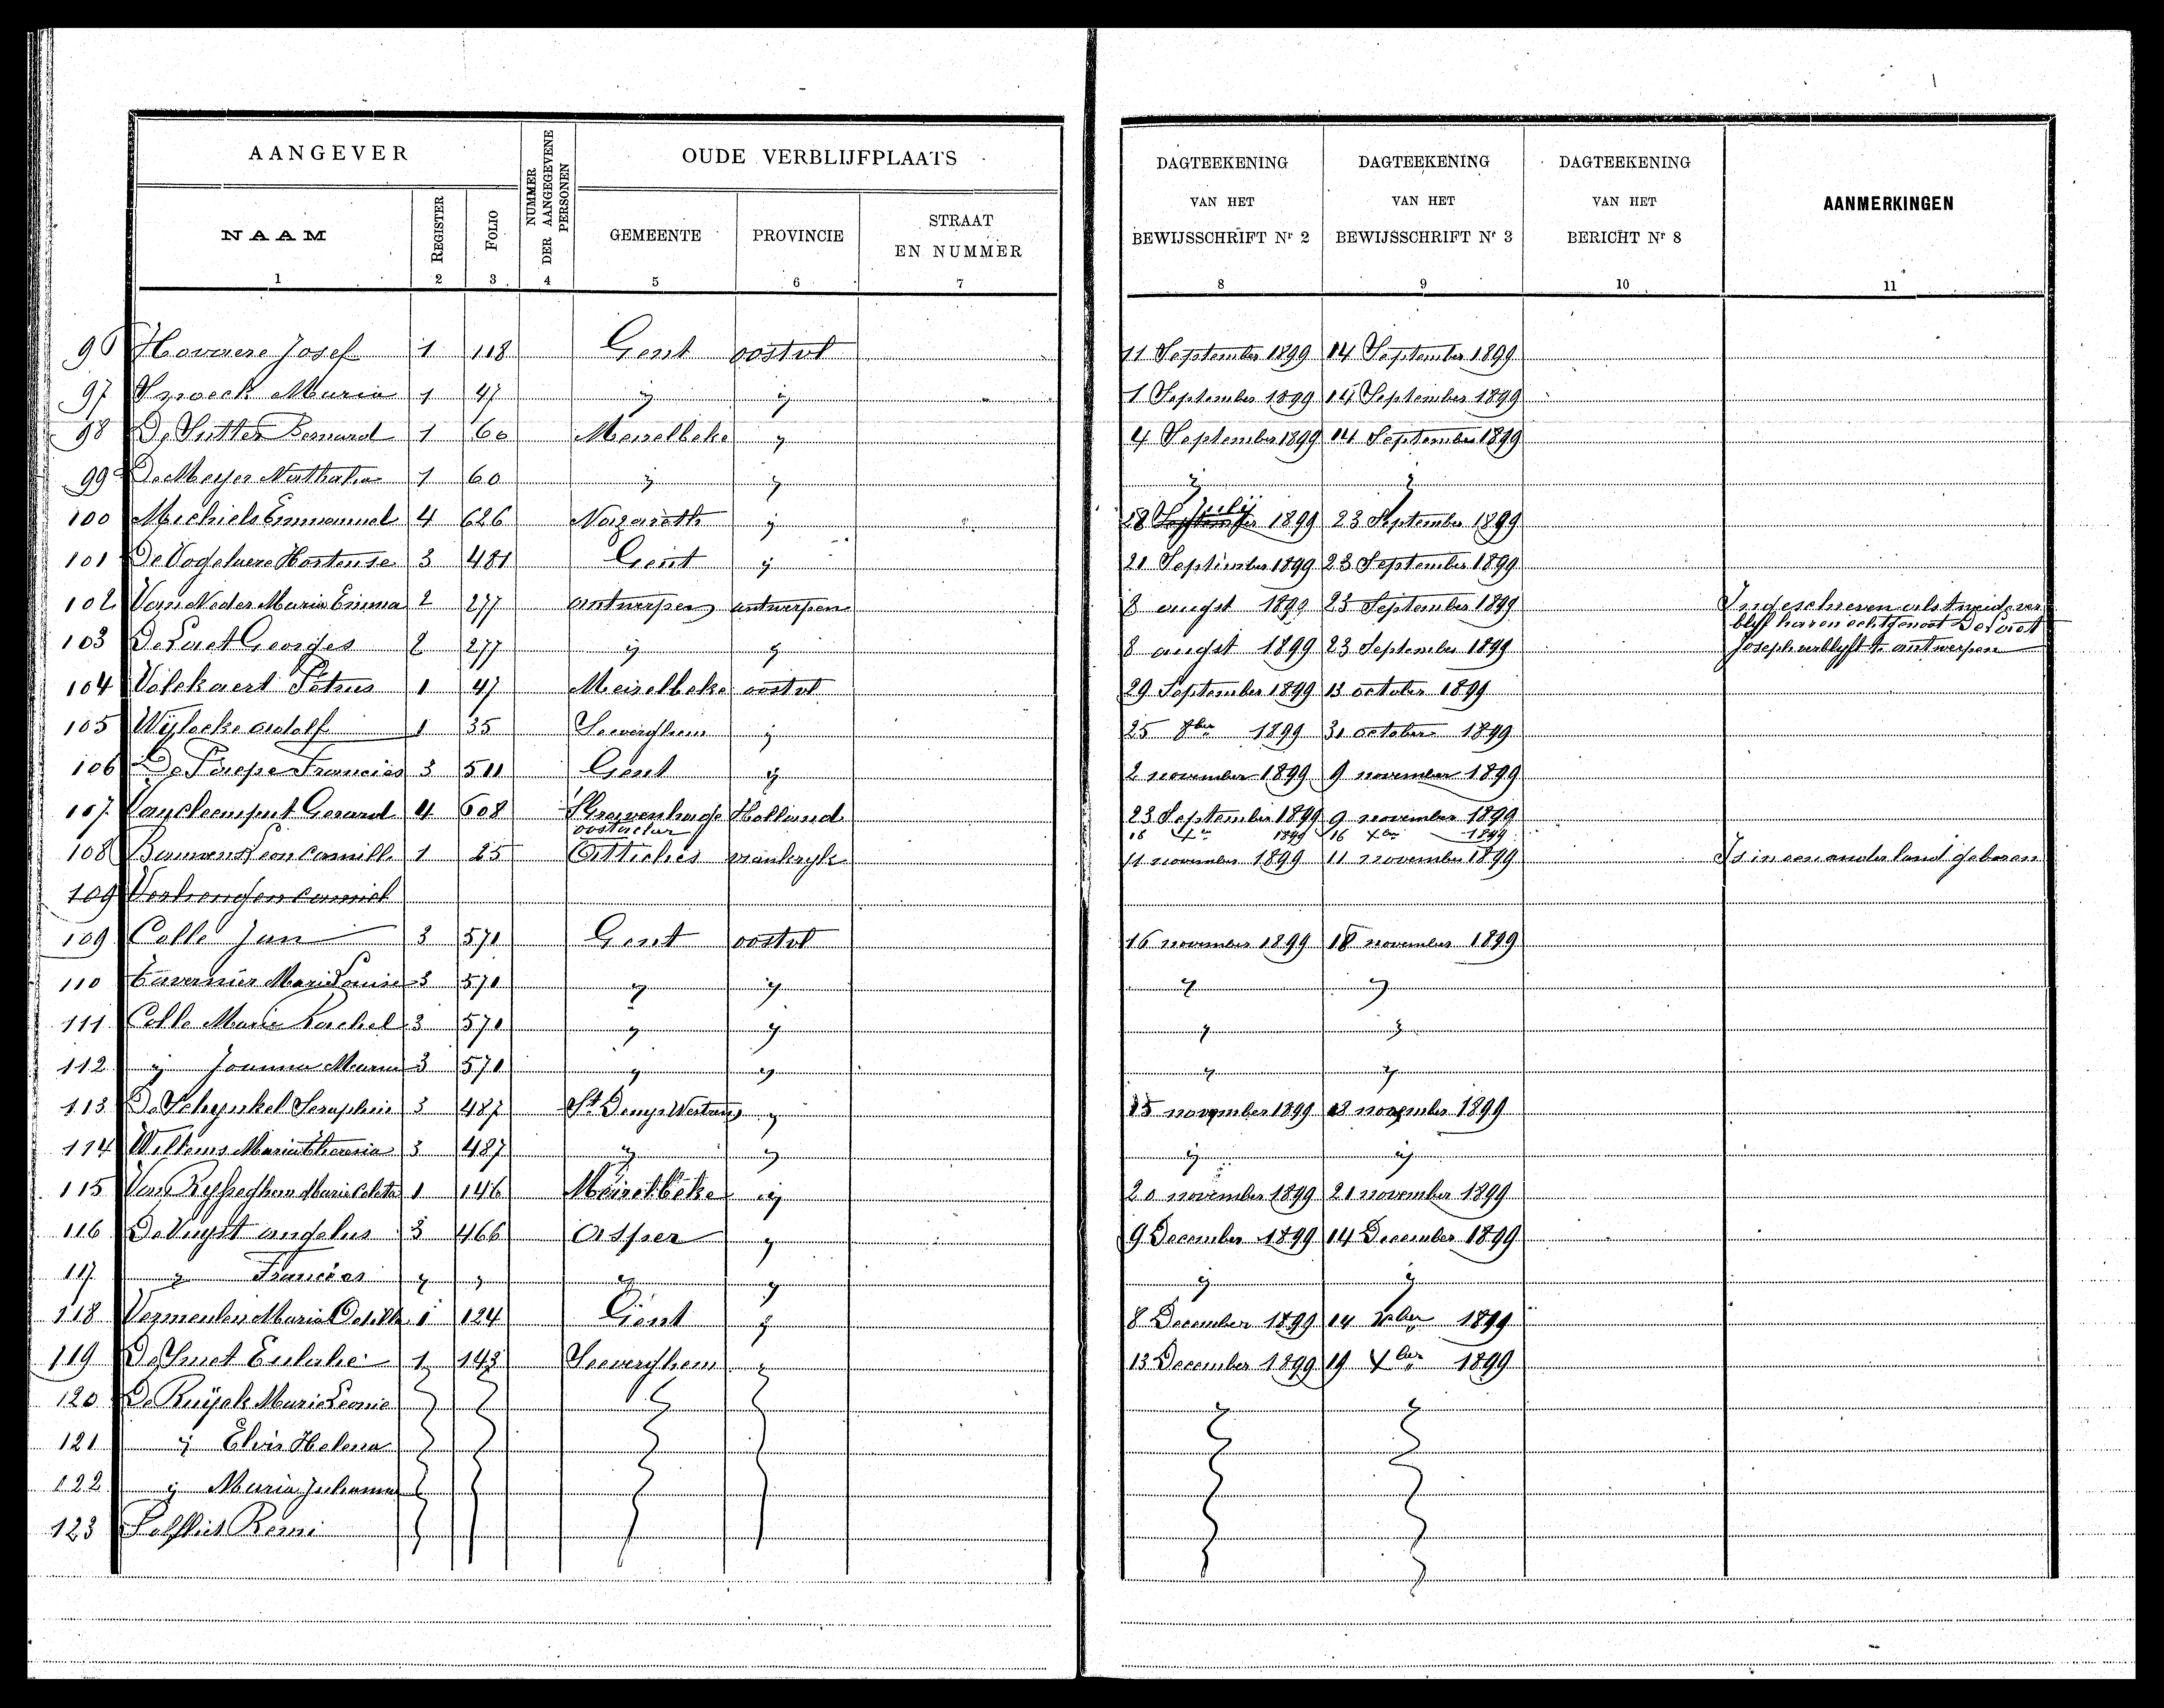 AANGEVER
NUMMER DER AANGEGEVENE PERSONEN
OUDE VERBLIJFPLAATS
DAGTEEKENING VAN HET BEWIJSSCHRIFT Nr 2
DAGTEEKENING VAN HET BEWIJSSCHRIFT Nr 3
DAGTEEKENING VAN HET BERICHT Nr 8
AANMERKINGEN
NAAM
REGISTER
FOLIO
GEMEENTE
PROVINCIE
STRAAT EN NUMMER
1 2 3 4 5 6 7 8 9 10 11
96 Josef 1 118 Gent oostvl 11 September 1899 14 September 1899
97 Maria 1 47 ij ij 1 September 1899 14 September 1899
98 De Sutter Bernard 1 60 Meirelbeke ij 4 September 1899 14 September 1899
99 De Meyer Nathalie 1 60 ij ij ij ij
100 Michiels Emmanuel 4 626 Nazareth ij 18 Julij 1899 23 September 1899
101 De Vogelaere Hortense 3 481 Gent ij 21 September 1899 23 September 1899
102 Maria Emma 2 277 antwerpen antwerpen 8 augst 1899 23 September 1899 Ingeschreven als tweede ver
blijf haren echtgenoot
103 Georges 2 277 ij ij 8 augst 1899 23 September 1899 Joseph verblyft te antwerpen
104 Volckaert Petrus 1 47 Meirelbeke oostvl 29 September 1899 13 october 1899
105 Wijlocke adolf 1 35 Seeverghem ij 25 8ber 1899 31 october 1899
106 De Paepe Francies 3 511 Gent ij 2 november 1899 9 november 1899
107 Gerard 4 608 S'Gravenhage Holland 23 September 1899 9 november 1899
16 Xer 1899 16 Xber 1899
108 Leon Camille 1 25 vrankryk 11 november 1899 11 november 1899 Is in een ander land geboren
109 Camiel
109 Colle Jan 3 570 Gent oostvl 16 november 1899 18 november 1899
110 Tavernier Marie Louise 3 570 ij ij ij ij
111 Colle Marie Rachel 3 570 ij ij ij ij
112 ij Joanna Maria 3 570 ij ij ij ij
113 De Schynkel Seraphin 3 487 St Denys Westrem ij 15 november 1899 18 november 1899
114 Willems Maria Theresia 3 487 ij ij ij ij
115 Van Rysseghem Marie Coleta 1 146 Meirelbeke ij 20 november 1899 21 november 1899
116 De Vuyst angelus 3 466 Asper ij 9 December 1899 14 December 1899
117 ij Francies ij ij ij ij ij ij
118 Vermeulen Maria Odilla 1 124 Gent ij 8 December 1899 14 Xber 1899
119 De Smet Eulalie 1 143 Seeverghem ij 13 December 1899 19 Xber 1899
120 De Ruijck Marie Leonie
121 ij Elvir Helena
122 ij Maria Johanna
123 Remi